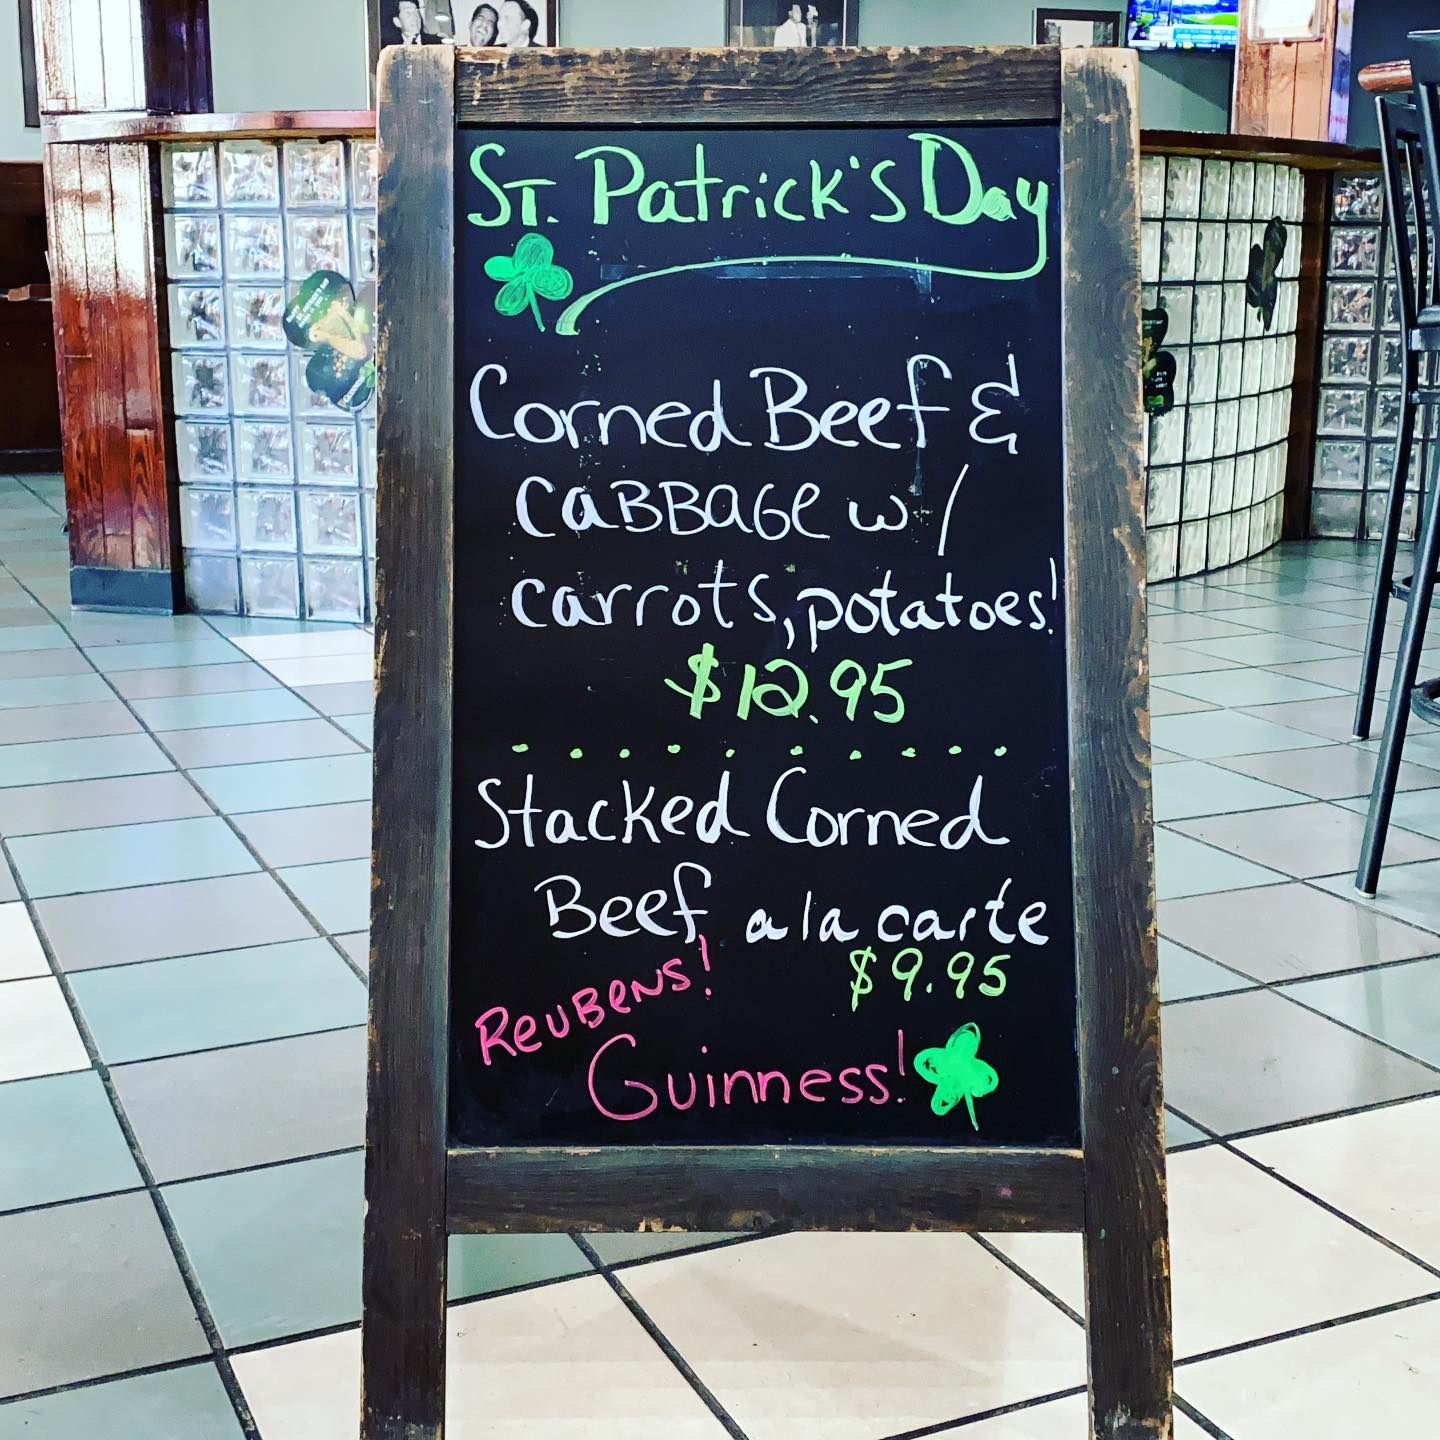 St. Patrick's Day
Corned Beef &
cabbage w/
carrots, potatoes!
$12.95
Stacked Corned
Beef a la carte
$9.95
Reubens!
Guinness!